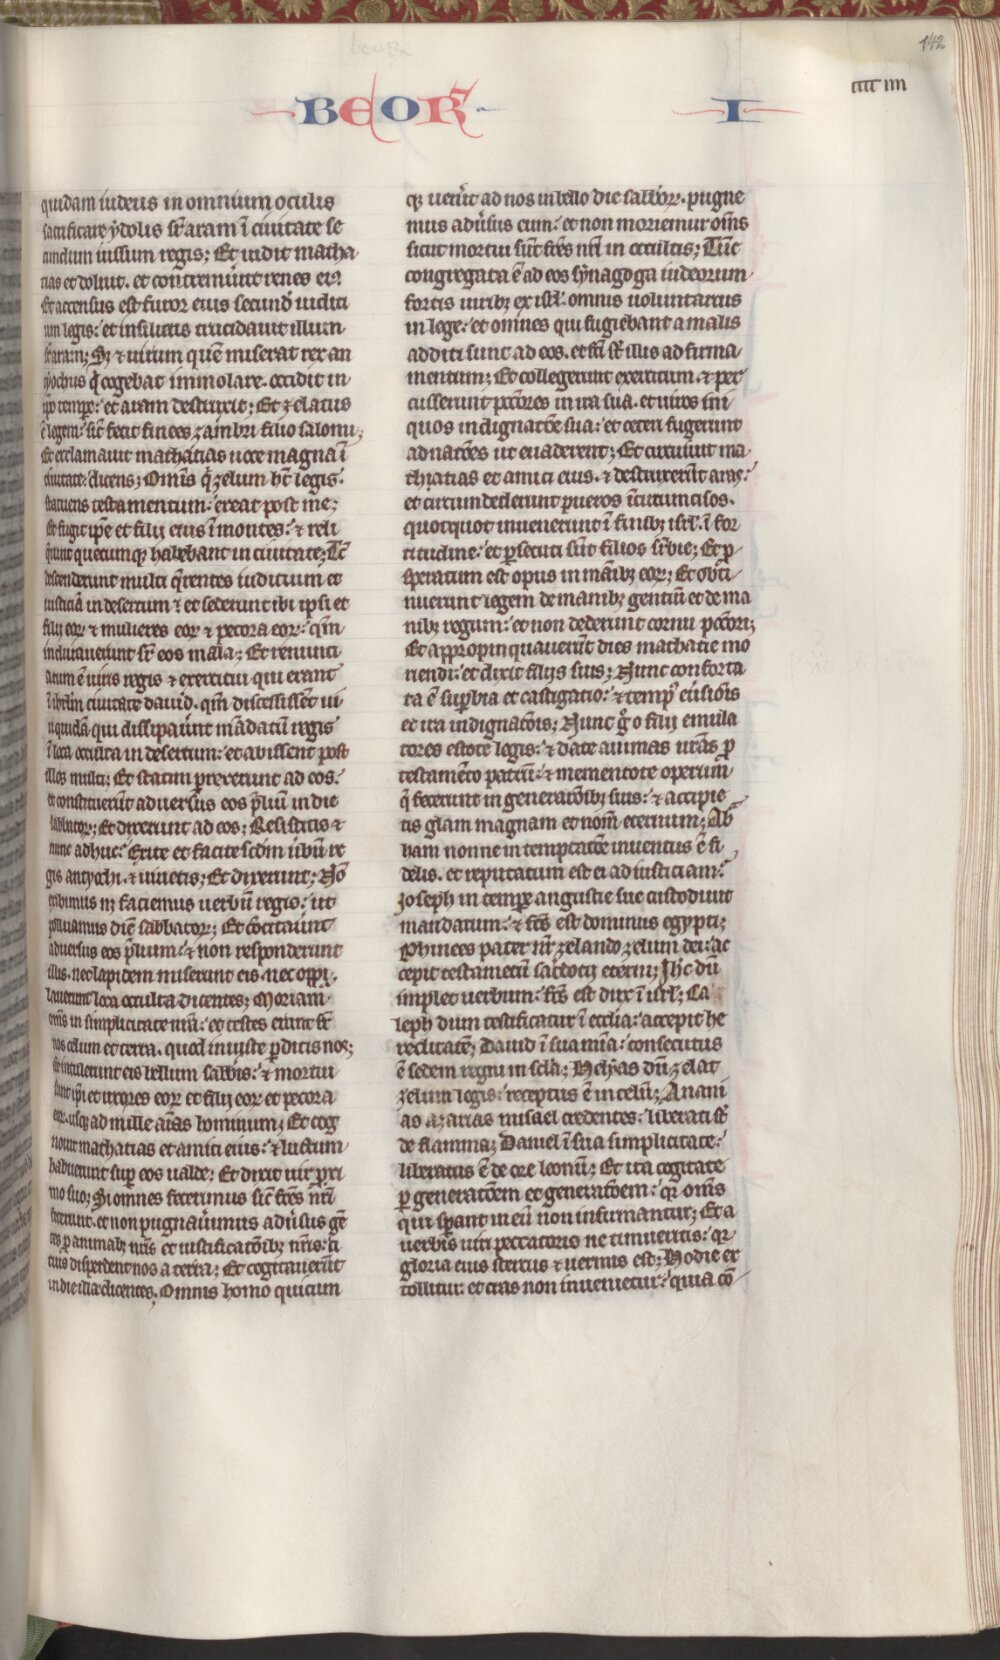 142
BEOR̄ I
quidam iudeus in omnium oculis
sacrificare ydolis sr̄ aram ī ciuitate se
cundum iussum regis; Et uidit matha
tias et doluit. et contremuer̄t renes ei9
Et accensus est furor eius secund̄ iudici
um legis: et insiliens trucidauit illum
sr̄ aram; Sꝫ ⁊ uirum quē miserat rex an
tyochus q̄ cogebat immolare. occidit in
ip̄o tempe: et aram destruxit; Et zelatus
ē legem: sic̄ fecit finees zambri filio salomi;
Et exclamauit mathatias uoce magna ī
ciuitate. dicens; Om̄is q̄ zelum hēt legis.
statuens testamentum: exeat post me;
Et fugit ip̄e et filij eius ī montes: ⁊ reli
q̄runt quecumqꝫ habebant in ciuitate; Tc̄
descenderunt multi q̄rentes iudicium et
iusticiā in desertum ⁊ et sederunt ibi ipsi et
filij eoꝝ ⁊ mulieres eoꝝ ⁊ pecora eoꝝ: qm̄
inducauerunt sr̄ eos mala; Et renunci
atum ē uiris regis ⁊ exercitui qui erant
ī ihrlm̄ ciuitate dauid. qm̄ discessissēt ui
ri quidā qui dissipauēt mādatū regis
ī loca occulta in desertum: et abissent post
illos multi; Et statim prexerunt ad eos:
et constituerūt aduersus eos p̄liū in die
sabbatoꝝ; Et dixerunt ad eos; Resistitis ⁊
nunc adhuc: Exite et facite scdm̄ ūbū re
gis antyochi. ⁊ uiuetis; Et dixerunt; Nō
exibimus nꝫ faciemus uerbū regis: ut
polluamus diē sabbatoꝝ; Et cōcitauēt
aduersus eos p̄lium: ⁊ non responderunt
illis. nec lapidem miserunt eis. nec oppi
lauerunt loca occulta dicentes; Moriam
om̄s in simplicitate nr̄a: et testes erunt sr̄
nos celum et terra. quod iniuste ꝑditis nos;
Et intulerunt eis bellum sabb̄is: ⁊ mortui
sunt ip̄i et uxores eoꝝ et filij eoꝝ et pecora
eoꝝ. usqꝫ ad mille aīas hominum; Et cog
nouit mathatias et amici eius: ⁊ luctum
habuerunt sup eos ualde; Et dixit uir ꝓxi
mo suo; Si omnes fecerimus sic̄ fr̄es nr̄i
fecerunt. et non pugnauimus adūsus gē
tes ꝓ animabꝫ nr̄is et iustificatōibꝫ nr̄is: ci
tius disperdent nos a terra; Et cogitauer̄t
in die illa dicentes; Omnis homo quicum
qꝫ uenīt ad nos in bello die sabb̄oꝝ. pugne
mus adūsus eum: et non moriemur om̄s
sicut mortui sūt fr̄es nr̄i in occultis; Tūc
congregata ē ad eos synagoga iudeorum
fortis uiribꝫ ex isrl̄. omnis uoluntarius
in lege: et omnes qui fugiebant a malis
additi sunt ad eos. et fc̄i sr̄ illis ad firma
mentum; Et collegerunt exercitum. ⁊ per
cusserunt pcc̄ores in ira sua. et uiros ini
quos indignatōe sua: et ceteri fugerunt
ad natōes ut euaderent; Et circuiuit ma
thiatias et amici eius. ⁊ destruxerūt aras:
et circumdederunt pueros ī circumcisos.
quotquot inuenerunt ī finibꝫ isrl̄. ī for
titudine: et ꝑsecuti sūt filios suꝑbie; Et ꝓ
speratum est opus in manibꝫ eoꝝ; Et obti
nuerunt legem de manibꝫ gentiū et de ma
nibꝫ regum: et non dederunt cornu pcc̄ori;
Et appropinquauerūt dies mathatie mo
riendi: et dixit filijs suis; Nunc conforta
ta ē supbia et castigatio: ⁊ temp9 eūsiōis
et ira indignatōis; Nunc ḡo o filij emula
tores estote legis: ⁊ date animas ur̄as ꝓ
testamēto patrū: ⁊ mementote operum
q̄ fecerunt in generatōibꝫ suis: ⁊ accipie
tis glam magnam et nom̄ eternum; Ab
ham nonne in temptatōe inuentus ē fi
delis. et reputatum est ei ad iusticiam:
Joseph in tempe angustie sue custodiuit
mandatum: ⁊ fc̄s est dominus egypti;
Phinees pater nr̄ zelando zelum dei: ac
cepit testametū sacdotij eterni; Ihc̄ dū
implet uerbum: fc̄s est dux ī isrl̄; Ca
leph dum testificatur ī ecclia: accepit he
reditatē; Dauid ī sua mīa: consecutus
ē sedem regni in scl̄a; Helyas dū zelat
zelum legis: receptus ē in celū; Anani
as azarias misael credentes: liberati sr̄
de flamma; Daniel ī sua simplicitate:
liberatus ē de ore leonū; Et ita cogitate
ꝑ generatōem et generatōem: qꝛ om̄s
qui spant in eū non infirmantur; Et a
uerbis uiri peccatoris ne timueritis: qꝛ
gloria eius stercus ⁊ uermis est; Hodie ex
tollitur: et cras non inuenietur: quia cō